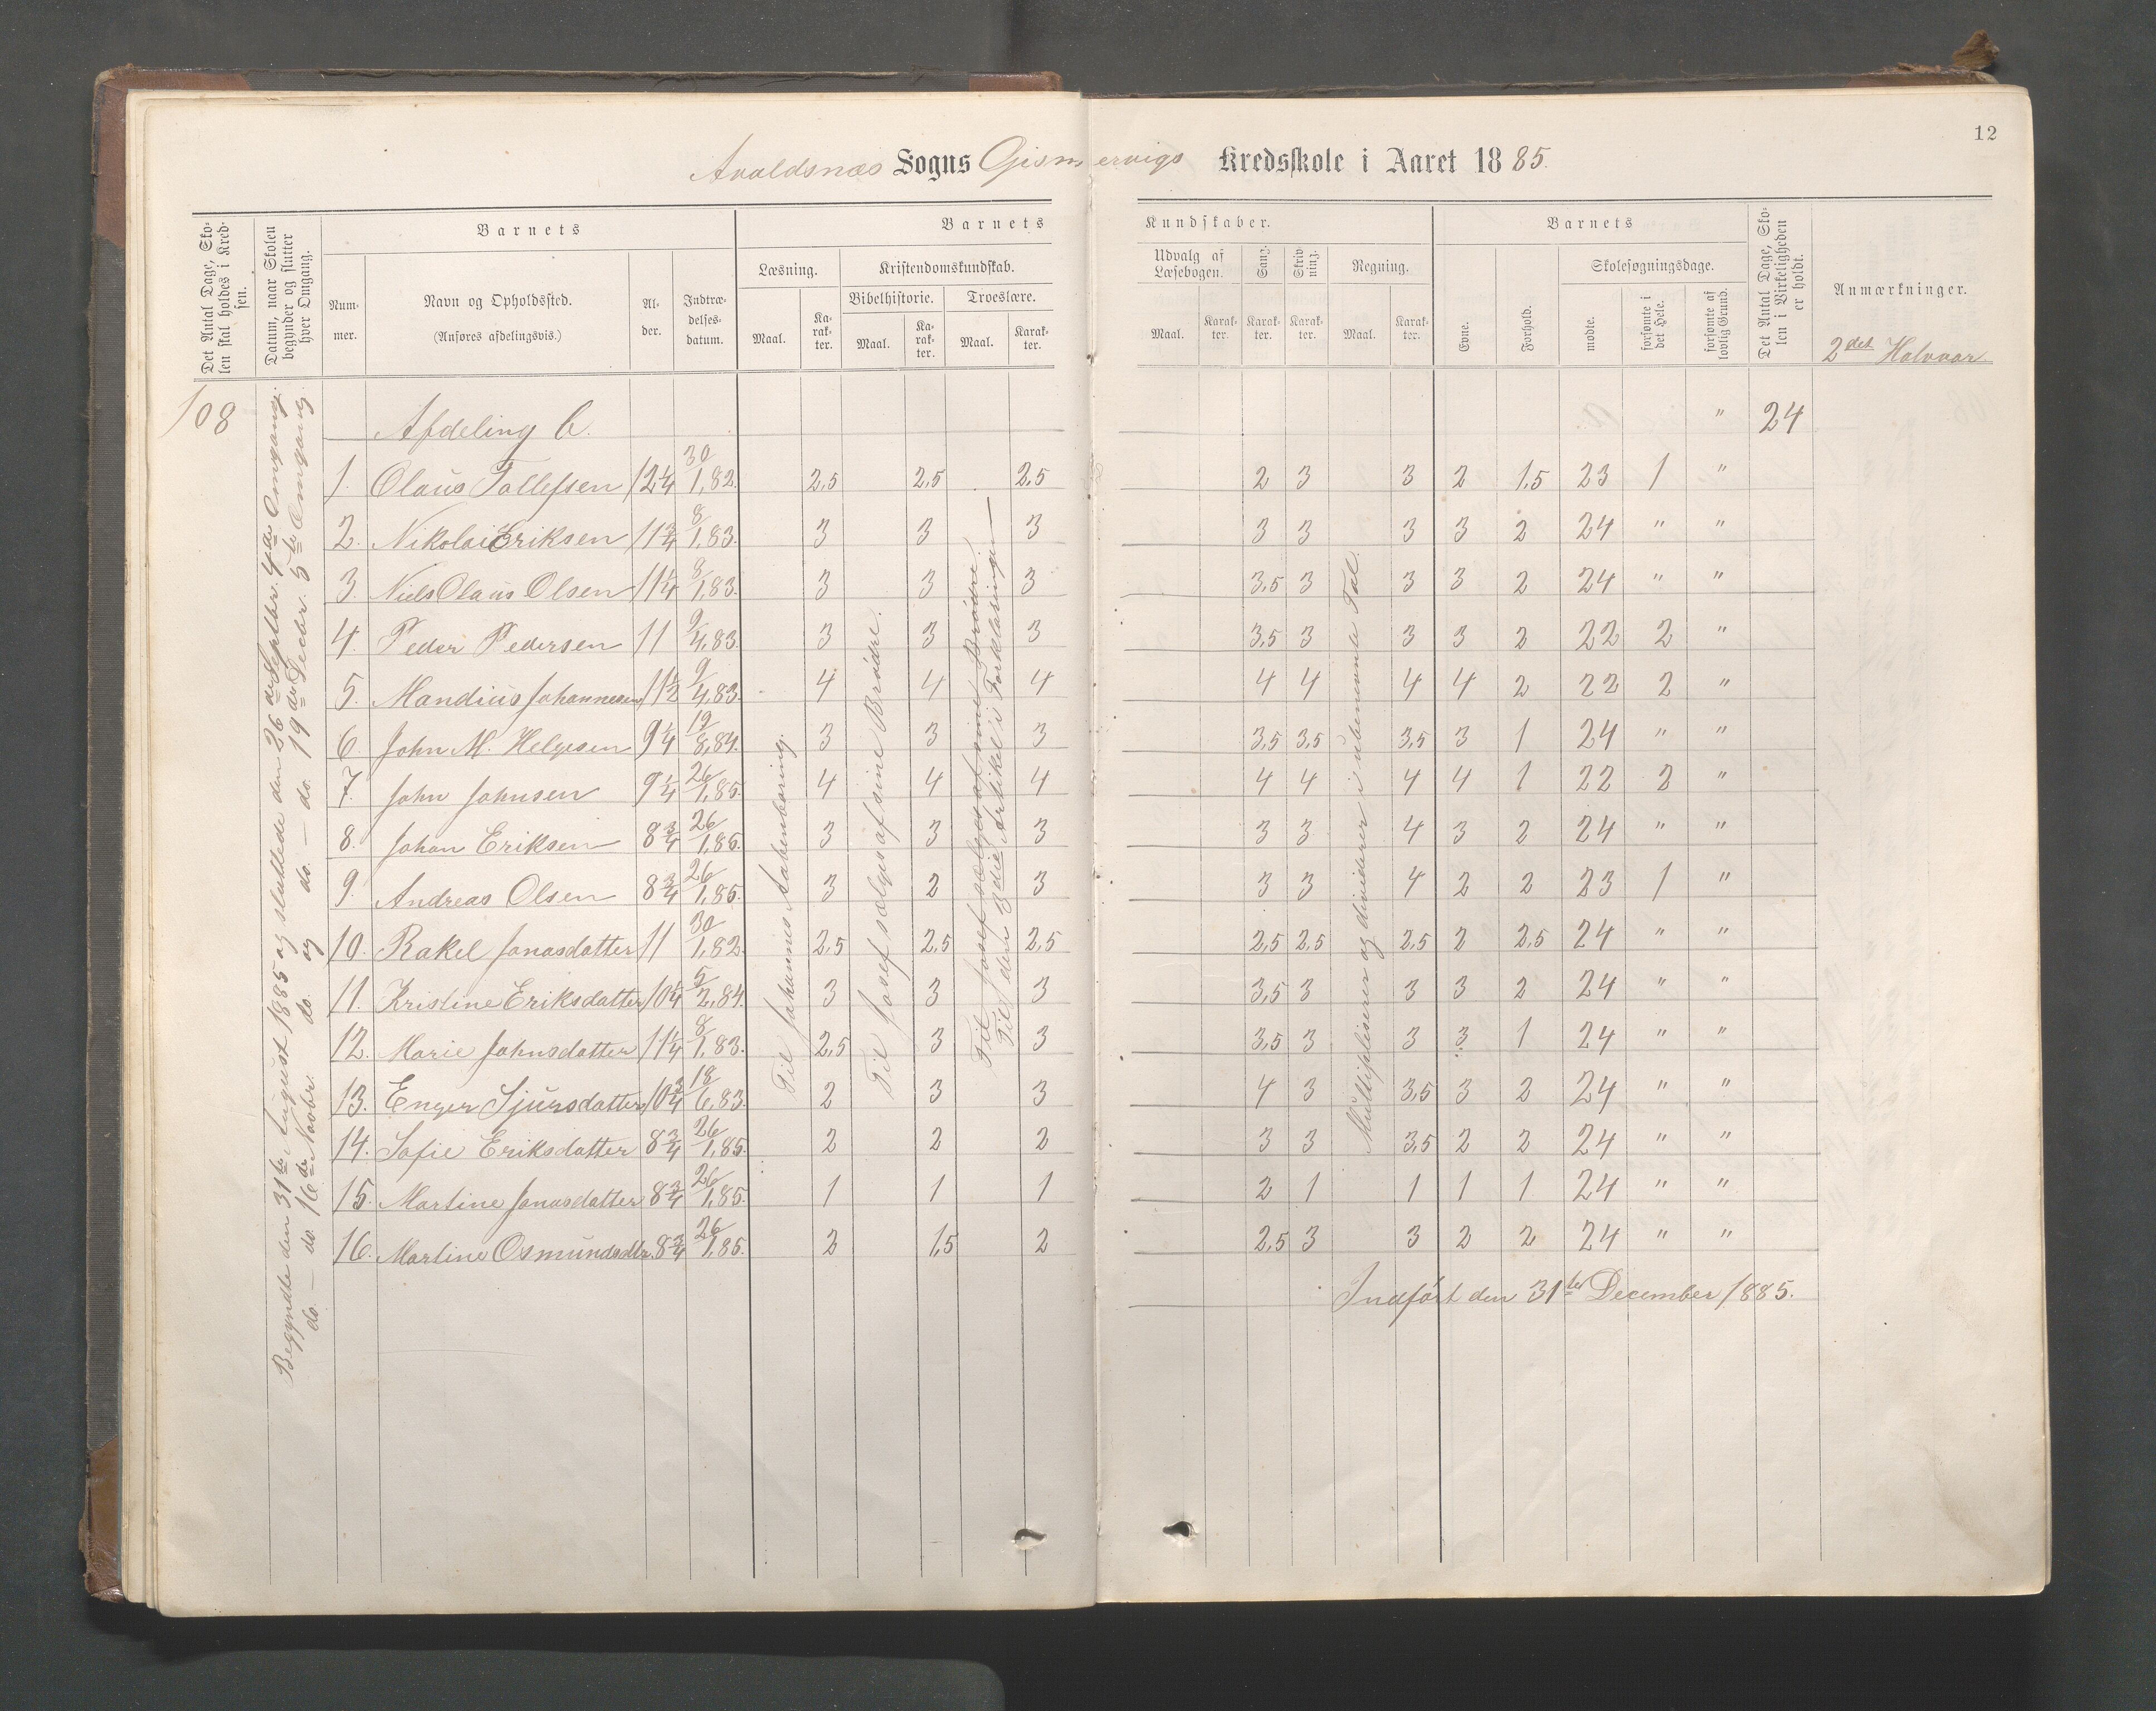 12
Avaldsnæs Sogns Gismervigs Kredsskole i Aaret 1885.
Det Antal Dage, Skolen skal holdes i Kredsen.
Datum, naar Skolen begynder og slutter hver Omgang.
Barnets
Nummer.
Navn og Opholdssted.
(Anføres afdelingsvis.)
Alder.
Indtrædelsesdatum.
Barnets Kundskaber.
Læsning.
Maal. Karakter.
Kristendomskundskab.
Bibelhistorie.
Maal. Karakter.
Troeslære.
Maal. Karakter.
Udvalg af Læsebogen.
Maal. Karakter.
Sang.
Karakter.
Skrivning.
Karakter.
Regning.
Maal. Karakter.
Barnets
Evne.
Forhold.
Skolesøgningsdage.
mødte.
forsømte i det Hele.
forsømte af lovlig Grund.
Det Antal Dage, Skolen i Virkeligheden er holdt.
Anmærkninger.
2det Halvaar
108
Begyndte den 31te August 1885 og sluttede den 26de Septbr. 4de Omgang.
do. — do. 16de Novbr. do. og do. — do. 19de Decbr. 5te Omgang.
Afdeling C. " 24
1. Olaus Tollefsen 12 1/4 30/1,82. 2,5 2,5 2,5 2 3 3 2 1,5 23 1 "
2. Nikolai Eriksen 11 3/4 8/1,83. 3 3 3 3 3 3 3 2 24 " "
3. Niels Olaus Olsen 11 1/4 8/1,83. 3 3 3 3,5 3 3 3 2 24 " "
4. Peder Pedersen 11 9/4,83. 3 3 3 3,5 3 3 3 2 22 2 "
5. Mandius Johannesen 11 1/2 9/4,83. 4 4 4 4 4 4 4 2 22 2 "
6. John M. Helgesen 9 1/4 19/8,84. 3 3 3 3,5 3,5 3,5 3 1 24 " "
7. John Johnsen 9 1/4 26/1,85. 4 4 4 4 4 4 4 1 22 2 "
8. Johan Eriksen 8 3/4 26/1,85. 3 3 3 3 3 4 3 2 24 " "
9. Andreas Olsen 8 3/4 26/1,85. 3 2 3 3 3 4 2 2 23 1 "
10. Rakel Jonasdatter 11 30/1,82. 2,5 2,5 2,5 2,5 2,5 2,5 2 2,5 24 " "
11. Kristine Eriksdatter 10 1/4 5/2,84. 3 3 3 3,5 3 3 3 2 24 " "
12. Marie Johnsdatter 11 1/4 8/1,83. 2,5 3 3 3,5 3 3 3 1 24 " "
13. Enger Sjursdatter 10 3/4 18/6,83. 2 3 3 4 3 3,5 3 2 24 " "
14. Sofie Eriksdatter 8 3/4 26/1,85. 2 2 2 3 3 3,5 2 2 24 " "
15. Martine Jonasdatter 8 3/4 26/1,85. 1 1 1 2 1 1 1 1 24 " "
16. Martine Osmundsdtr. 8 3/4 26/1,85. 2 1,5 2 2,5 3 3 2 2 24 " "
Til Johannes Aabenbaring.
Til Josef sælges af sine Brødre.
Til Josef sælges af sine Brødre.
Til den 3die Artikel i Forklaringen —
Multipliserer og dividerer i ubenævnte Tal.
Indført den 31te December 1885.